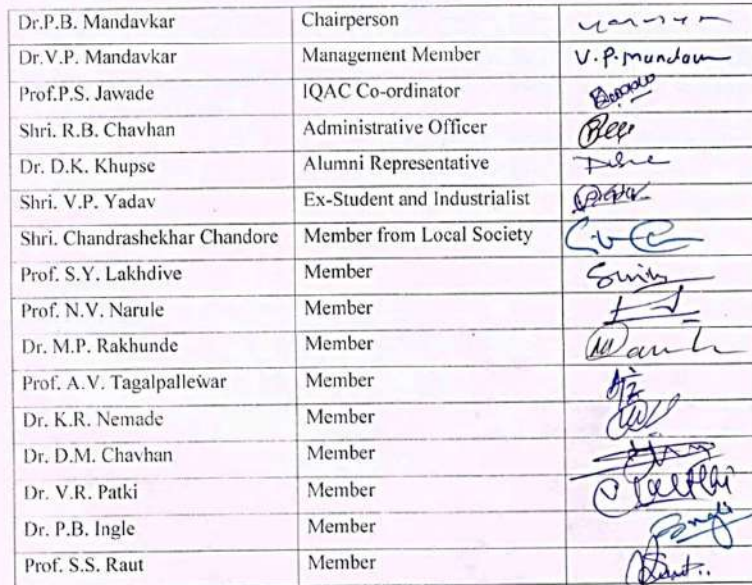 Dr.P.B. Mandavkar Chairperson
Dr.V.P. Mandavkar Management Member V.P.mundavr
Prof.P.S. Jawade IQAC Co-ordinator
Shri. R.B. Chavhan Administrative Officer
Dr. D.K. Khupse Alumni Representative
Shri. V.P. Yadav Ex-Student and Industrialist
Shri. Chandrashekhar Chandore Member from Local Society
Prof. S.Y. Lakhdive Member
Prof. N.V. Narule Member
Dr. M.P. Rakhunde Member
Prof. A.V. Tagalpallewar Member
Dr. K.R. Nemade Member
Dr. D.M. Chavhan Member
Dr. V.R. Patki Member
Dr. P.B. Ingle Member
Prof. S.S. Raut Member